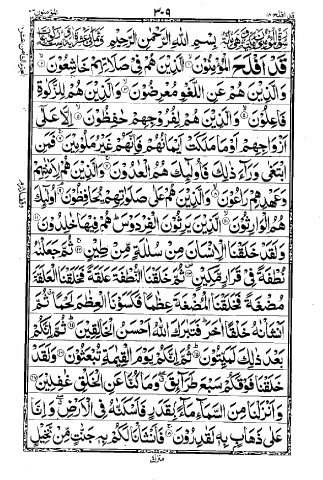 ٣٠٩
بِسْمِ اللهِ الرَّحْمٰنِ الرَّحِيْمِ
قَدْ اَفْلَحَ الْمُؤْمِنُوْنَ الَّذِيْنَ هُمْ فِيْ صَلَاتِهِمْ خَاشِعُوْنَ
وَالَّذِيْنَ هُمْ عَنِ اللَّغْوِ مُعْرِضُوْنَ وَالَّذِيْنَ هُمْ لِلزَّكٰوةِ
فَاعِلُوْنَ وَالَّذِيْنَ هُمْ لِفُرُوْجِهِمْ حٰفِظُوْنَ اِلَّا عَلٰى
اَزْوَاجِهِمْ اَوْ مَا مَلَكَتْ اَيْمَانُهُمْ فَاِنَّهُمْ غَيْرُ مَلُوْمِيْنَ فَمَنِ
ابْتَغٰى وَرَاءَ ذٰلِكَ فَاُولٰٓئِكَ هُمُ الْعٰدُوْنَ وَالَّذِيْنَ هُمْ لِاَمٰنٰتِهِمْ
وَعَهْدِهِمْ رَاعُوْنَ وَالَّذِيْنَ هُمْ عَلٰى صَلَوٰتِهِمْ يُحَافِظُوْنَ اُولٰٓئِكَ
هُمُ الْوَارِثُوْنَ الَّذِيْنَ يَرِثُوْنَ الْفِرْدَوْسَ هُمْ فِيْهَا خٰلِدُوْنَ
وَلَقَدْ خَلَقْنَا الْاِنْسَانَ مِنْ سُلٰلَةٍ مِّنْ طِيْنٍ ثُمَّ جَعَلْنٰهُ
نُطْفَةً فِيْ قَرَارٍ مَّكِيْنٍ ثُمَّ خَلَقْنَا النُّطْفَةَ عَلَقَةً فَخَلَقْنَا الْعَلَقَةَ
مُضْغَةً فَخَلَقْنَا الْمُضْغَةَ عِظٰمًا فَكَسَوْنَا الْعِظٰمَ لَحْمًا ثُمَّ
اَنْشَاْنٰهُ خَلْقًا اٰخَرَ فَتَبٰرَكَ اللهُ اَحْسَنُ الْخَالِقِيْنَ ثُمَّ اِنَّكُمْ
بَعْدَ ذٰلِكَ لَمَيِّتُوْنَ ثُمَّ اِنَّكُمْ يَوْمَ الْقِيٰمَةِ تُبْعَثُوْنَ وَلَقَدْ
خَلَقْنَا فَوْقَكُمْ سَبْعَ طَرَآئِقَ وَمَا كُنَّا عَنِ الْخَلْقِ غٰفِلِيْنَ
وَاَنْزَلْنَا مِنَ السَّمَآءِ مَآءً بِقَدَرٍ فَاَسْكَنّٰهُ فِي الْاَرْضِ وَاِنَّا
عَلٰى ذَهَابٍ بِهٖ لَقٰدِرُوْنَ فَاَنْشَاْنَا لَكُمْ بِهٖ جَنّٰتٍ مِّنْ نَّخِيْلٍ
منزل